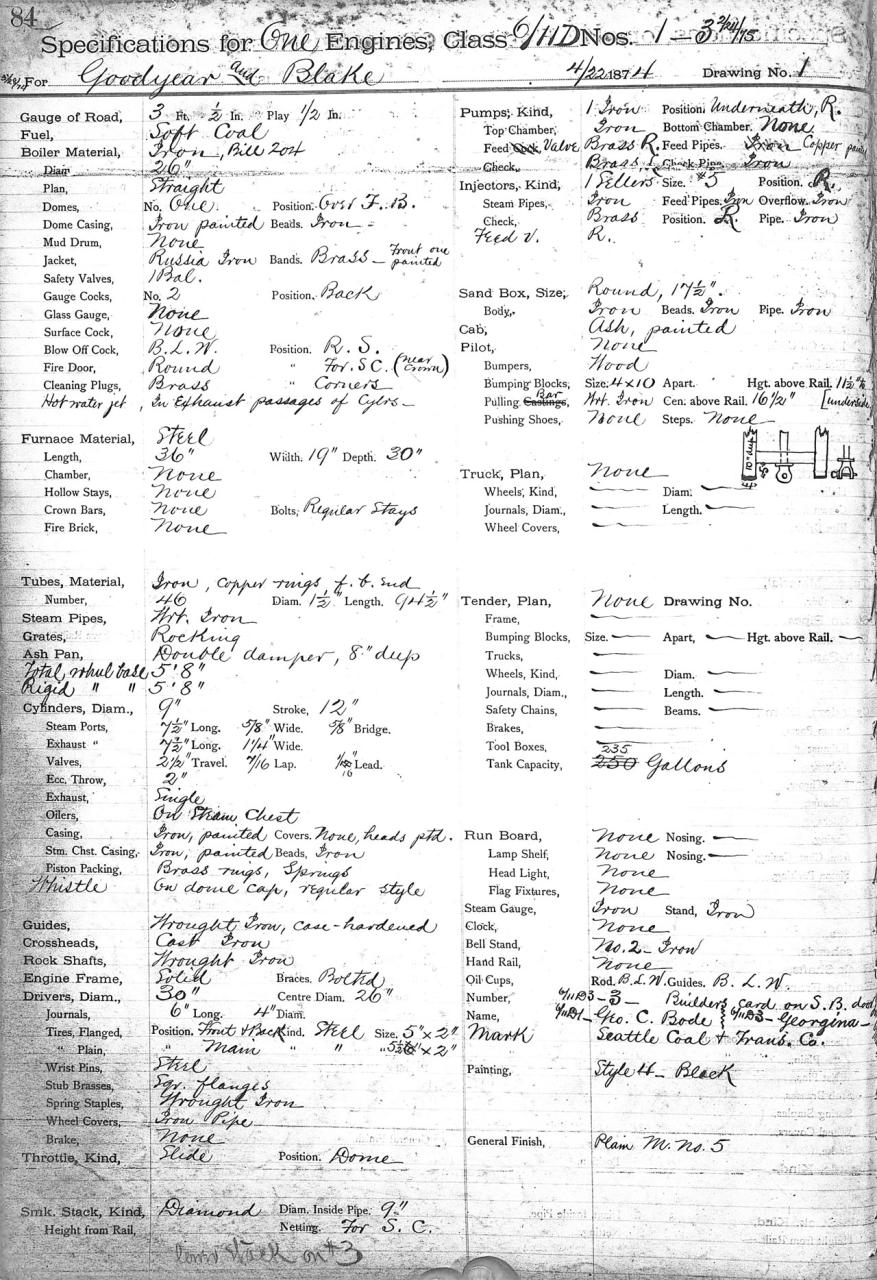 84
Specifications for One Engines, Class 6/11D Nos. 1 - 3 2/24/75
For Goodyear and Blake 4/22 1874 Drawing No. 1
Gauge of Road, 3 Ft. ½ In. Play 1/2 In.
Fuel, Soft Coal
Boiler Material, Iron, Bill 204
Diam 26"
Plan, Straight
Domes, No. One. Position. Over F. B.
Dome Casing, Iron painted Beads. Iron
Mud Drum, None
Jacket, Russia Iron Bands. Brass - Front one painted
Safety Valves, 1 Bal.
Gauge Cocks, No. 2 Position. Back
Glass Gauge, None
Surface Cock, None
Blow Off Cock, B. L. W. Position. R. S.
Fire Door, Round " For. S C. (near Crown)
Cleaning Plugs, Brass " Corners
Hot water jet, In Exhaust passages of Cylrs
Furnace Material, Steel
Length, 36" Width. 19" Depth. 30"
Chamber, None
Hollow Stays, None
Crown Bars, None Bolts, Regular Stays
Fire Brick, None
Tubes, Material, Iron, copper rings f. b. end
Number, 46 Diam. 1½" Length. 94½"
Steam Pipes, Wrt. Iron
Grates, Rocking
Ash Pan, Double damper, 8" deep
Total wheel base 5'8"
Rigid " " 5'8"
Cylinders, Diam., 9" Stroke, 12"
Steam Ports, 7½" Long. 5/8" Wide. 5/8" Bridge.
Exhaust " 7½" Long. 1¼" Wide.
Valves, 2½" Travel. 7/16 Lap. Lead.
Ecc. Throw, 2"
Exhaust, Single
Oilers, On Steam Chest
Casing, Iron, painted Covers. None, heads ptd.
Stm. Chst. Casing, Iron, painted Beads, Iron
Piston Packing, Brass rings, Springs
Whistle On dome cap, regular style
Guides, Wrought Iron, case-hardened
Crossheads, Cast Iron
Rock Shafts, Wrought Iron
Engine Frame, Solid Braces. Bolted
Drivers, Diam., 30" Centre Diam. 26"
Journals, 6" Long. 4" Diam.
Tires, Flanged, Position. Front & Back Kind. Steel Size. 5" x 2"
" Plain, " Main " " " 5½" x 2"
Wrist Pins, Steel
Stub Brasses, Sqr. flanges
Spring Staples, Wrought Iron
Wheel Covers, Iron Pipe
Brake, None
Throttle, Kind, Slide Position. Dome
Smk. Stack, Kind, Diamond Diam. Inside Pipe. 9"
Height from Rail, Netting. For S. C.
Stack on #3
Pumps, Kind, 1 Iron Position. Underneath, R.
Top Chamber, Iron Bottom Chamber. None
Feed Cock, Valve Brass R. Feed Pipes. Iron Copper
Check, Brass Check Pipe. Iron
Injectors, Kind, 1 Sellers Size. #5 Position. R.
Steam Pipes, Iron Feed Pipes. Iron Overflow. Iron
Check, Brass Position. R Pipe. Iron
Feed V. R.
Sand Box, Size, Round, 17½".
Body, Iron Beads. Iron Pipe. Iron
Cab, Ash, painted
Pilot, None
Bumpers, Wood
Bumping Blocks, Size. 4 x 10 Apart. Hgt. above Rail. 11½"
Pulling Castings, Bar Wrt. Iron Cen. above Rail. 16½" [underside
Pushing Shoes, None Steps. None
10" deep
Truck, Plan, None
Wheels, Kind, Diam.
Journals, Diam., Length.
Wheel Covers,
Tender, Plan, None Drawing No.
Frame,
Bumping Blocks, Size. Apart, Hgt. above Rail.
Trucks,
Wheels, Kind, Diam.
Journals, Diam., Length.
Safety Chains, Beams.
Brakes,
Tool Boxes,
Tank Capacity, 250 235 Gallons
Run Board, None Nosing.
Lamp Shelf, None Nosing.
Head Light, None
Flag Fixtures, None
Steam Gauge, Iron Stand, Iron
Clock, None
Bell Stand, No. 2 - Iron
Hand Rail, None
Oil Cups, Rod. B. L. W. Guides. B. L. W.
Number, 6/11D3 - 3 - Builders card on S. B. door
Name, 6/11D1 - Geo. C. Bode } 6/11D3 - Georgina
Mark Seattle Coal & Trans. Co.
Painting, Style 4 - Black
General Finish, Plain M. No. 5